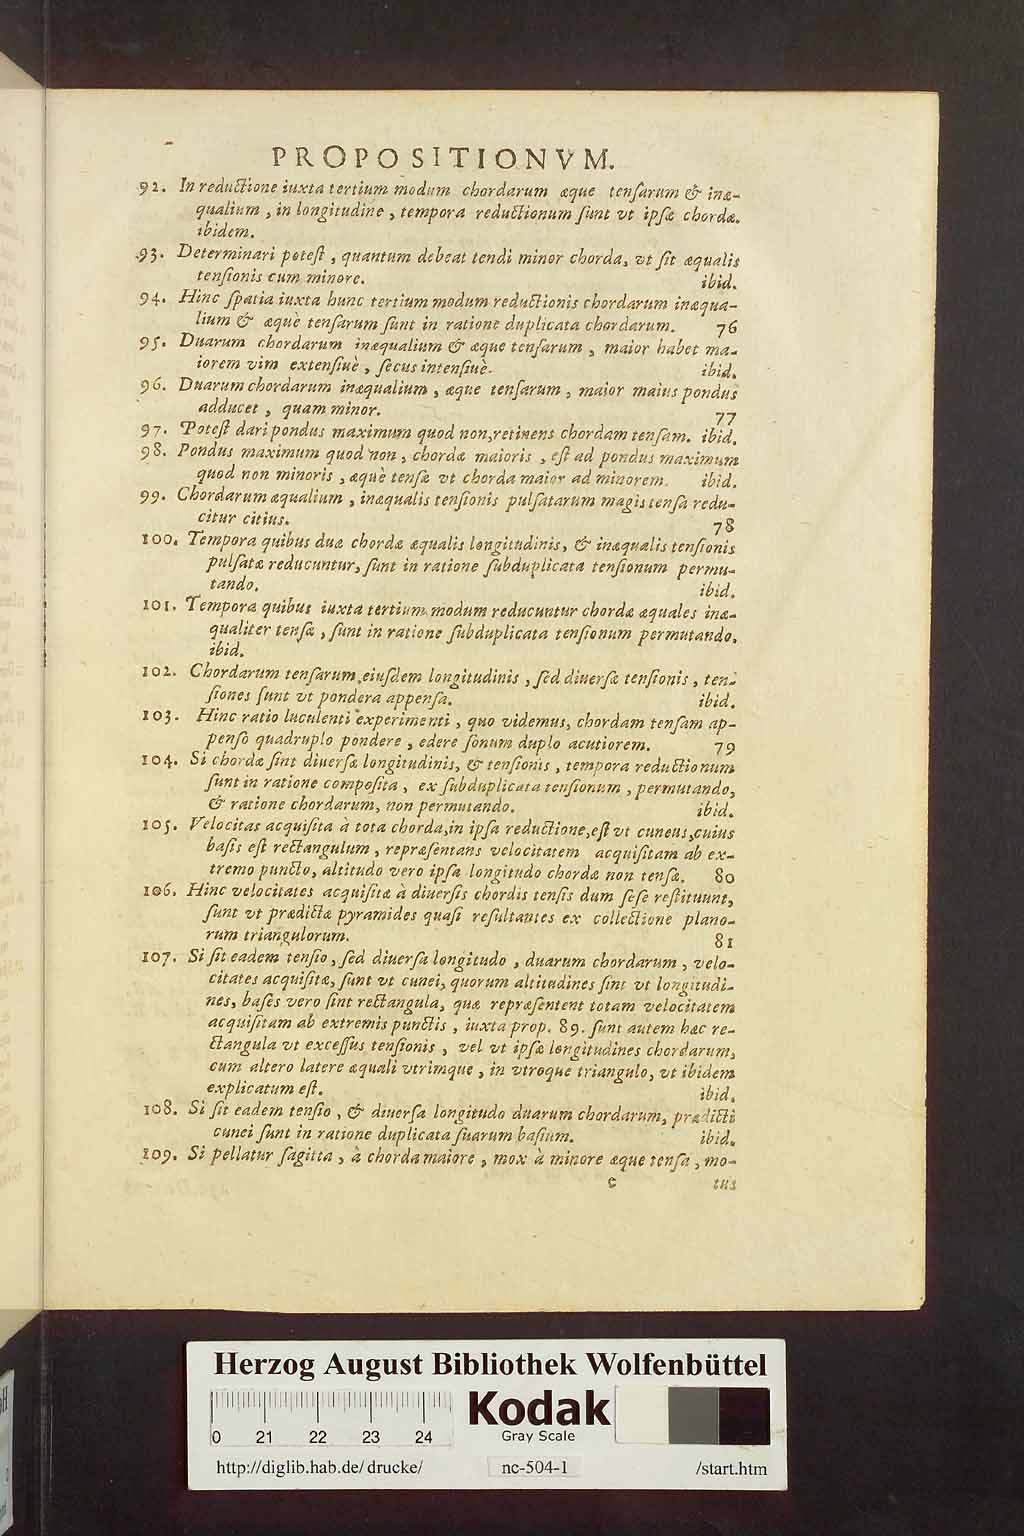 PROPOSITIONVM.
92. In reductione iuxta tertium modum chordarum æque tensarum & inæ-
qualium, in longitudine, tempora reductionum sunt vt ipsæ chordæ.
ibidem.
93. Determinari potest, quantum debeat tendi minor chorda, vt sit æqualis
tensionis cum minore. ibid.
94. Hinc spatia iuxta hunc tertium modum reductionis chordarum inæqua-
lium & æquè tensarum sunt in ratione duplicata chordarum. 76
95. Duarum chordarum inæqualium & æque tensarum, maior habet ma-
iorem vim extensiuè, secus intensiuè. ibid.
96. Duarum chordarum inæqualium, æque tensarum, maior maius pondus
adducet, quam minor. 77
97. Potest dari pondus maximum quod non, retinens chordam tensam. ibid.
98. Pondus maximum quod non, chordæ maioris, est ad pondus maximum
quod non minoris, æquè tensæ vt chorda maior ad minorem. ibid.
99. Chordarum æqualium, inæqualis tensionis pulsatarum magis tensa redu-
citur citius. 78
100. Tempora quibus duæ chordæ æqualis longitudinis, & inæqualis tensionis
pulsatæ reducuntur, sunt in ratione subduplicata tensionum permu-
tando. ibid.
101. Tempora quibus iuxta tertium modum reducuntur chordæ æquales inæ-
qualiter tensæ, sunt in ratione subduplicata tensionum permutando.
ibid.
102. Chordarum tensarum, eiusdem longitudinis, sed diuersæ tensionis, ten-
siones sunt vt pondera appensa. ibid.
103. Hinc ratio luculenti experimenti, quo videmus, chordam tensam ap-
penso quadruplo pondere, edere sonum duplo acutiorem. 79
104. Si chordæ sint diuersæ longitudinis, & tensionis, tempora reductionum
sunt in ratione composita, ex subduplicata tensionum, permutando,
& ratione chordarum, non permutando. ibid.
105. Velocitas acquisita à tota chorda, in ipsa reductione, est vt cuneus, cuius
basis est rectangulum, repræsentans velocitatem acquisitam ab ex-
tremo puncto, altitudo vero ipsa longitudo chordæ non tensæ. 80
106. Hinc velocitates acquisitæ à diuersis chordis tensis dum sese restituunt,
sunt vt prædictæ pyramides quasi resultantes ex collectione plano-
rum triangulorum. 81
107. Si sit eadem tensio, sed diuersa longitudo, duarum chordarum, velo-
citates acquisitæ, sunt vt cunei, quorum altitudines sint vt longitudi-
nes, bases vero sint rectangula, quæ repræsentent totam velocitatem
acquisitam ab extremis punctis, iuxta prop. 89. sunt autem hæc re-
ctangula vt excessus tensionis, vel vt ipsæ longitudines chordarum,
cum altero latere æquali vtrimque, in vtroque triangulo, vt ibidem
explicatum est. ibid.
108. Si sit eadem tensio, & diuersa longitudo duarum chordarum, prædicti
cunei sunt in ratione duplicata suarum basium. ibid.
109. Si pellatur sagitta, à chorda maiore, mox à minore æque tensa, mo-
c tus
Herzog August Bibliothek Wolfenbüttel
0 21 22 23 24
Kodak
Gray Scale
http://diglib.hab.de/drucke/ nc-504-1 /start.htm